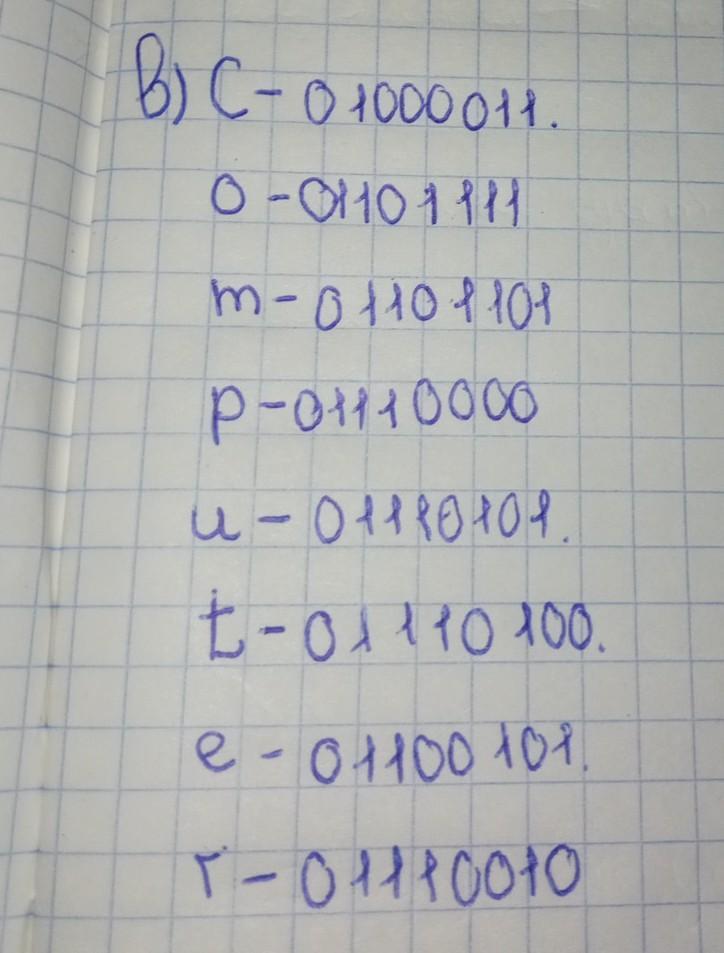 В) C - 01000011.
o - 01101111
m - 01101101
p - 01110000
u - 01110101.
t - 01110100.
e - 01100101.
r - 01110010